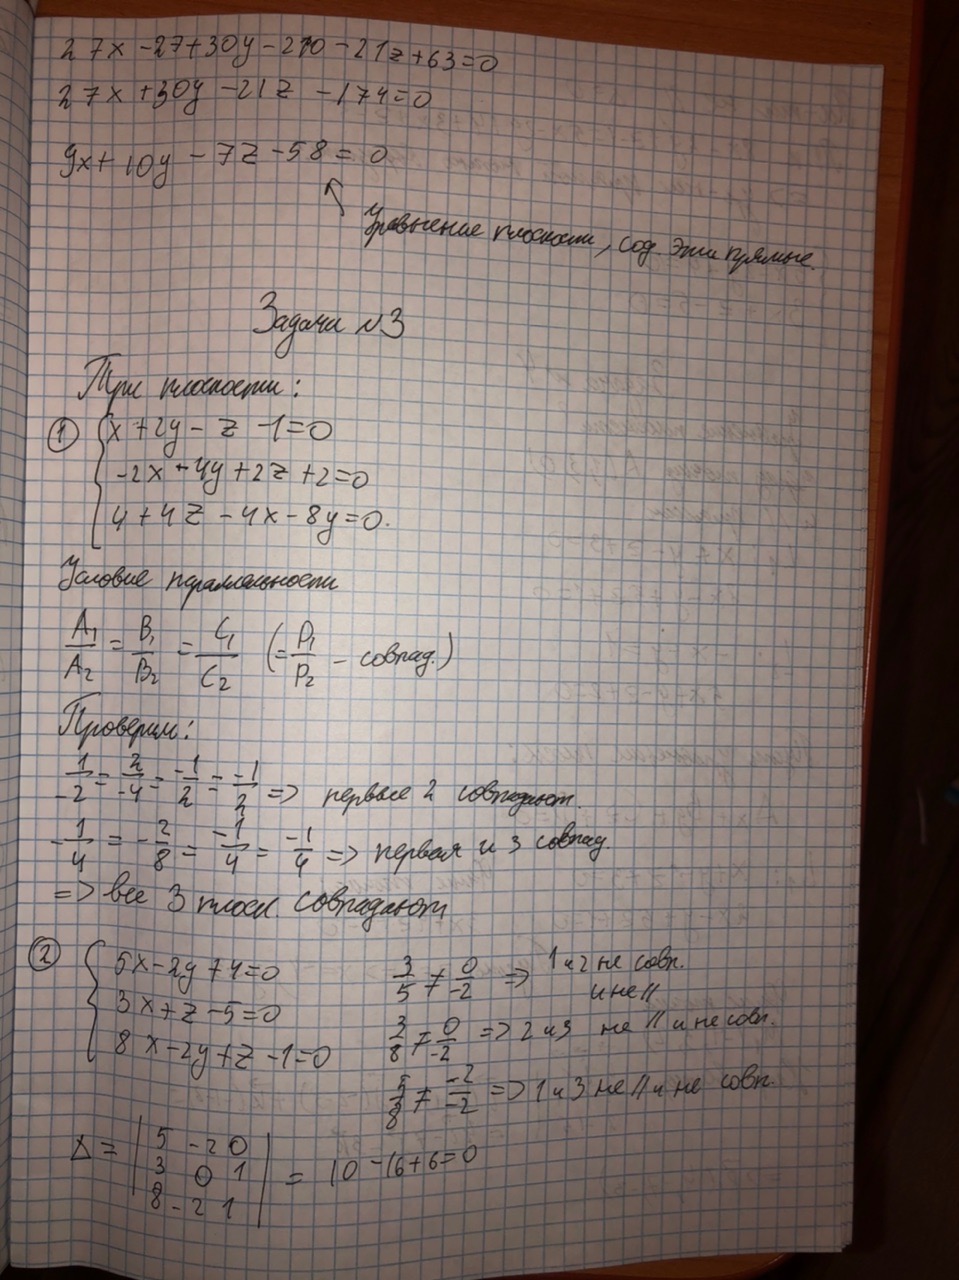 27x - 27 + 30y - 210 - 21z + 63 = 0
27x + 30y - 21z - 174 = 0
9x + 10y - 7z - 58 = 0
Уравнение плоскости, сод. эти прямые.
Задача №3
Три плоскости:
① { x + 2y - z - 1 = 0
-2x - 4y + 2z + 2 = 0
4 + 4z - 4x - 8y = 0.
Условие параллельности
A₁/A₂ = B₁/B₂ = C₁/C₂ (= P₁/P₂ - совпад.)
Проверим:
1/-2 = 2/-4 = -1/2 = -1/2 => первые 2 совпадают.
-1/4 = -2/8 = -1/4 = -1/4 => первая и 3 совпад.
=> все 3 плоск. совпадают
② { 5x - 2y + 4 = 0
3x + z - 5 = 0
8x - 2y + z - 1 = 0
3/5 ≠ 0/-2 => 1 и 2 не совп.
и не ||
3/8 ≠ 0/-2 => 2 и 3 не || и не совп.
5/8 ≠ -2/-2 => 1 и 3 не || и не совп.
Δ = | 5 -2 0
3 0 1
8 -2 1 | = 10 - 16 + 6 = 0